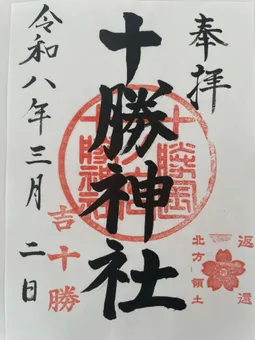 奉拝
十勝神社
令和八年三月二日
吉十勝
返還
北方領土